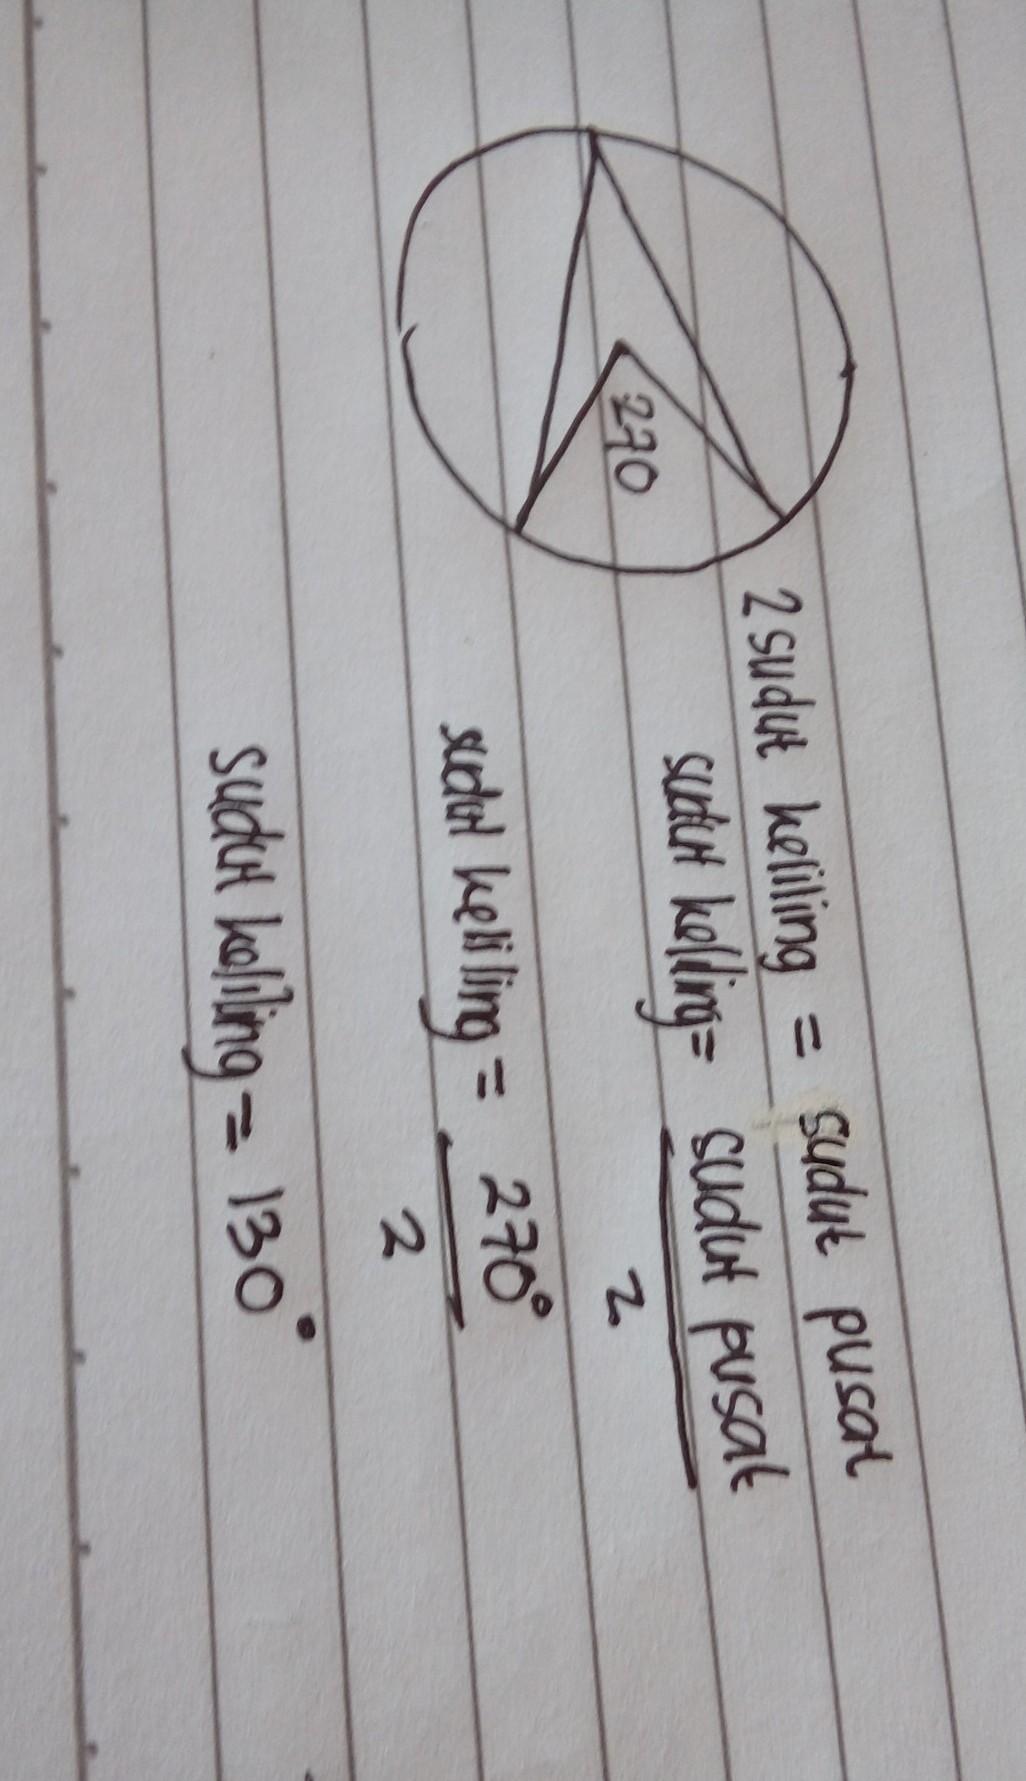 270
2 sudut keliling = sudut pusat
sudut keliling = sudut pusat
2
sudut keliling = 270°
2
sudut keliling = 130°